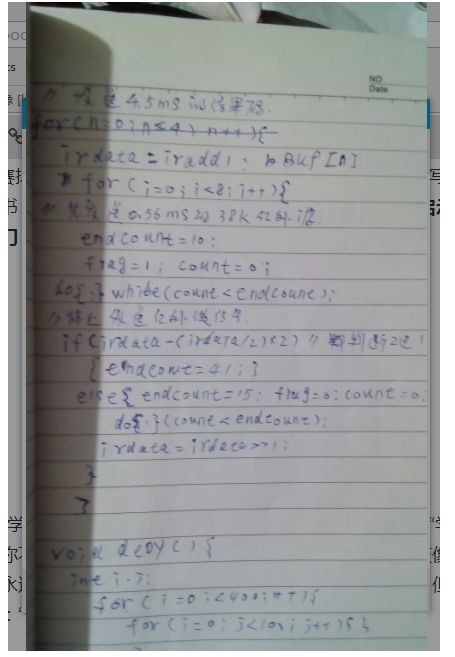 NO
Date
// 发送4.5ms的结果码.
for(n=0;n≤4;n++){
irdata=iradd1; bBuf[n]
for(i=0;i<8;i++){
// 先发送0.56ms的38K红外波
endcount=10;
frag=1; count=0;
do{.}while(count<endcount);
//停止发送红外信号
if(irdata-(irdata/2)*2) //
{endcont=41;}
else{endcount=15; frag=0;count=0;
do{.}(count<endcount);
irdata=irdata>>1;
}
}
void deoy(){
int i.j;
for(i=0;i<400;i++){
for(i=0;j<10;j++){}